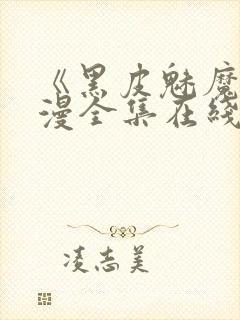 《黑皮魅魔
漫全集在线
凌志美